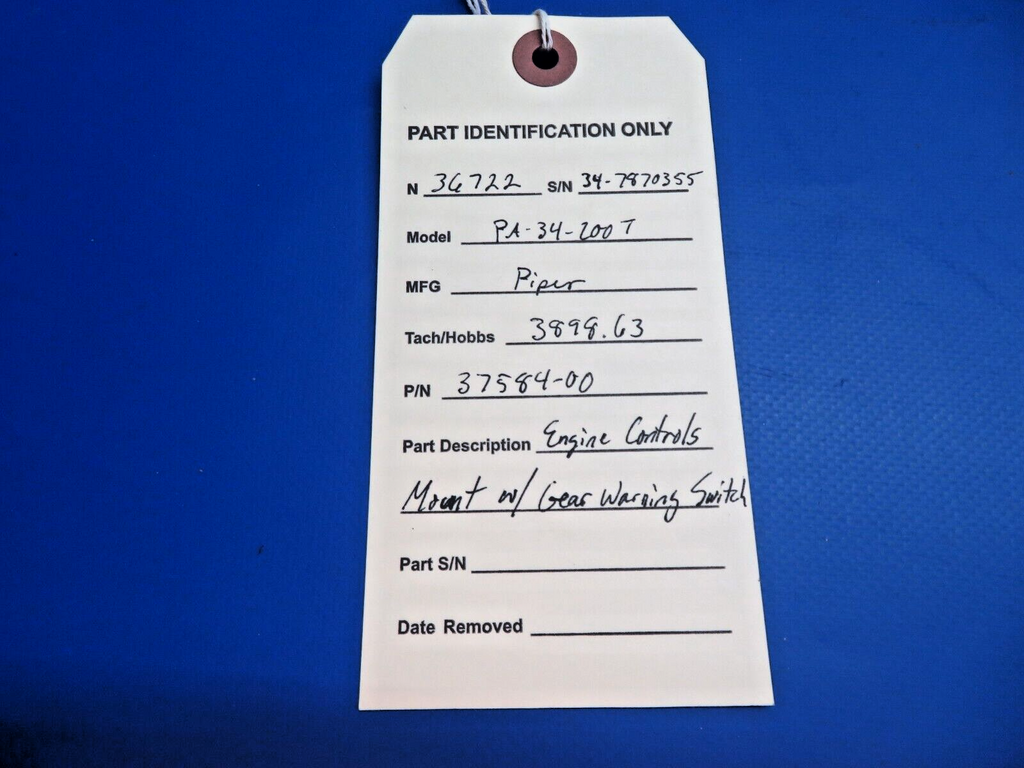 PART IDENTIFICATION ONLY
N 36722 S/N 34-7870355
Model PA-34-200T
MFG Piper
Tach/Hobbs 3898.63
P/N 37584-00
Part Description Engine Controls
Mount w/ Gear Warning Switch
Part S/N
Date Removed